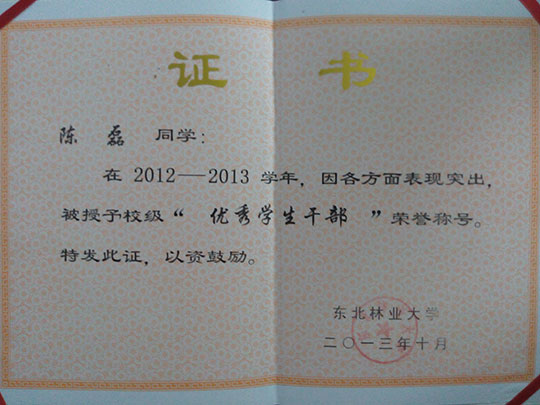 证 书
陈 磊 同学：
在 2012—2013 学年，因各方面表现突出，
被授予校级“ 优秀学生干部 ”荣誉称号。
特发此证，以资鼓励。
东北林业大学
二〇一三年十月